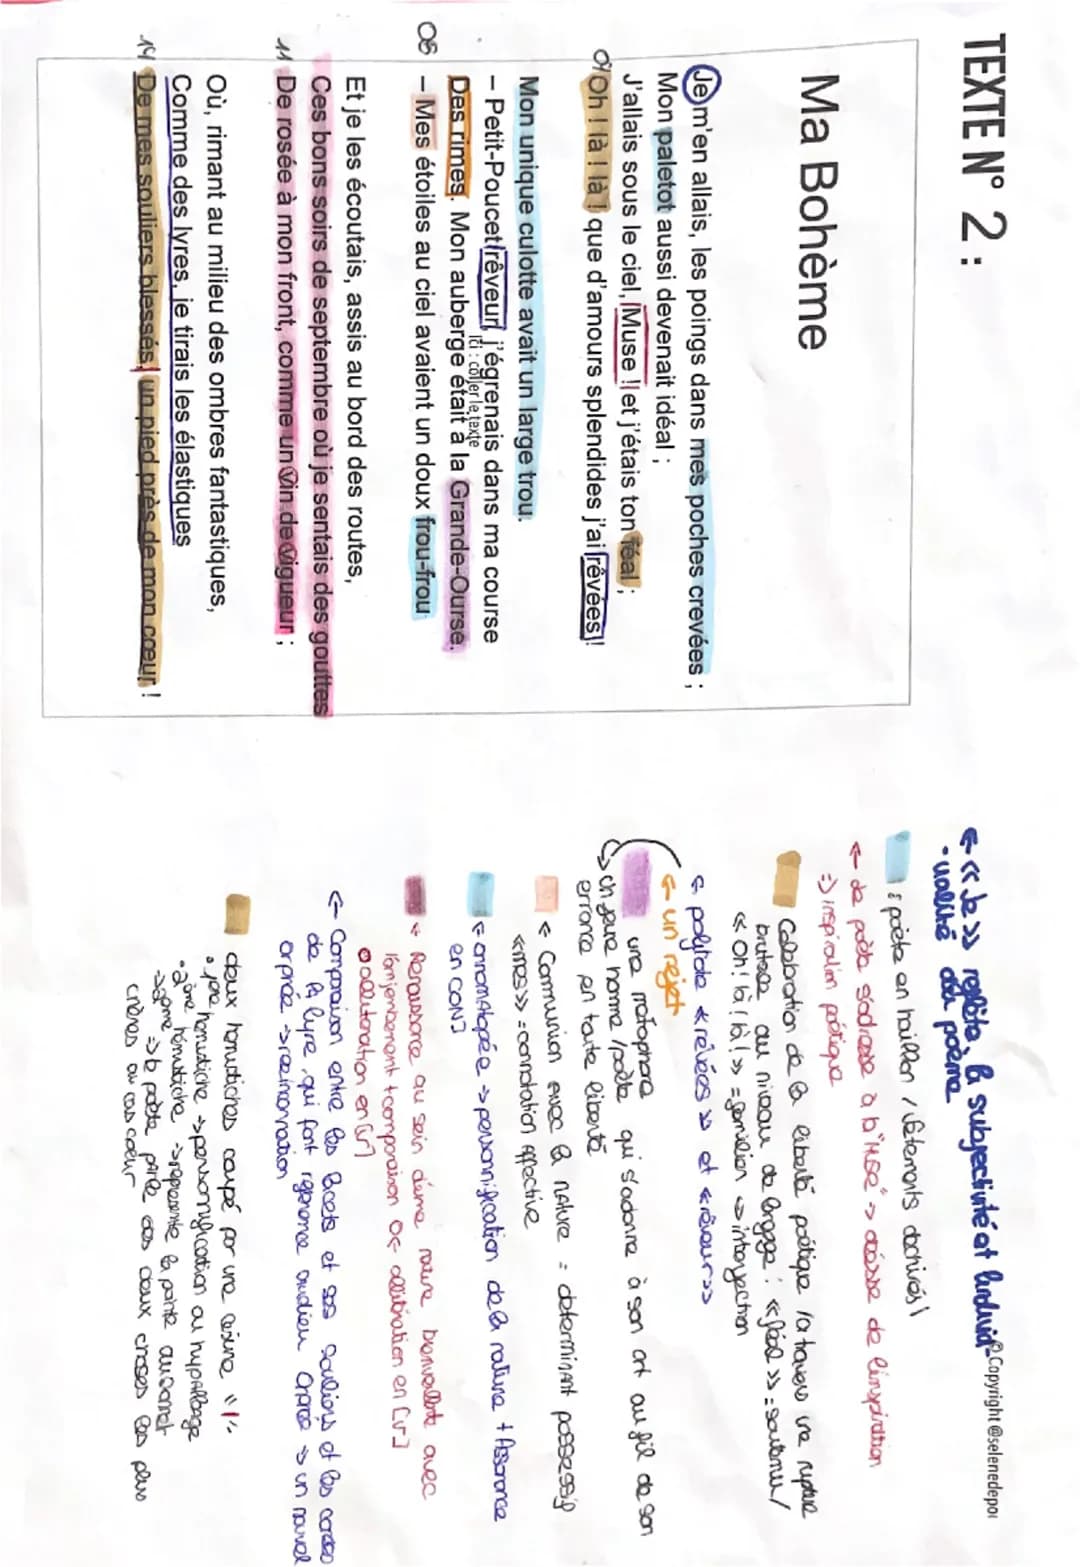 TEXTE N° 2 :
Ma Bohème
Je m'en allais, les poings dans mes poches crevées ;
Mon paletot aussi devenait idéal ;
J'allais sous le ciel, Muse ! et j'étais ton féal ;
04 Oh ! là ! là ! que d'amours splendides j'ai rêvées !
Mon unique culotte avait un large trou.
– Petit-Poucet rêveur, j'égrenais dans ma course
Ici : coller le texte
Des rimes. Mon auberge était à la Grande-Ourse.
08 – Mes étoiles au ciel avaient un doux frou-frou
Et je les écoutais, assis au bord des routes,
Ces bons soirs de septembre où je sentais des gouttes
11 De rosée à mon front, comme un vin de vigueur ;
Où, rimant au milieu des ombres fantastiques,
Comme des lyres, je tirais les élastiques
14 De mes souliers blessés, un pied près de mon cœur !
Copyright @selenedepoi
← « Je » reflète la subjectivité et l'individu-
-ualité du poème
: poète en haillon / vêtements déchirés
← le poète s'adresse à la "Muse" → déesse de l'inspiration
⇒ inspiration poétique
Célébration de la liberté poétique / à travers une rupture
brutale au niveau du langage : « féal » = soutenu /
« Oh ! là ! là ! » = familier → interjection
polyptote « rêvées » et « rêveur »
← un rejet
une métaphore
↳ Un jeune homme / poète qui s'adonne à son art au fil de son
errance en toute liberté
← Communion avec la nature = déterminant possessif
« mes » = connotation affective
← onomatopée → personnification de la nature + Assonance
en [ON]
← Renaissance au sein d'une nature bienveillante avec
l'enjambement + comparaison et allitération en [v]
allitération en [r]
← Comparaison entre les lacets et ses souliers et les cordes
de la lyre, qui font référence au dieu Orphée → un nouvel
orphée → réincarnation
deux hémistiches coupé par une césure "/"
• 1ère hémistiche → personnification ou hypallage
• 2ème hémistiche → représente la pointe au sonnet
→ le poète parle des deux choses les plus
chères au cœur